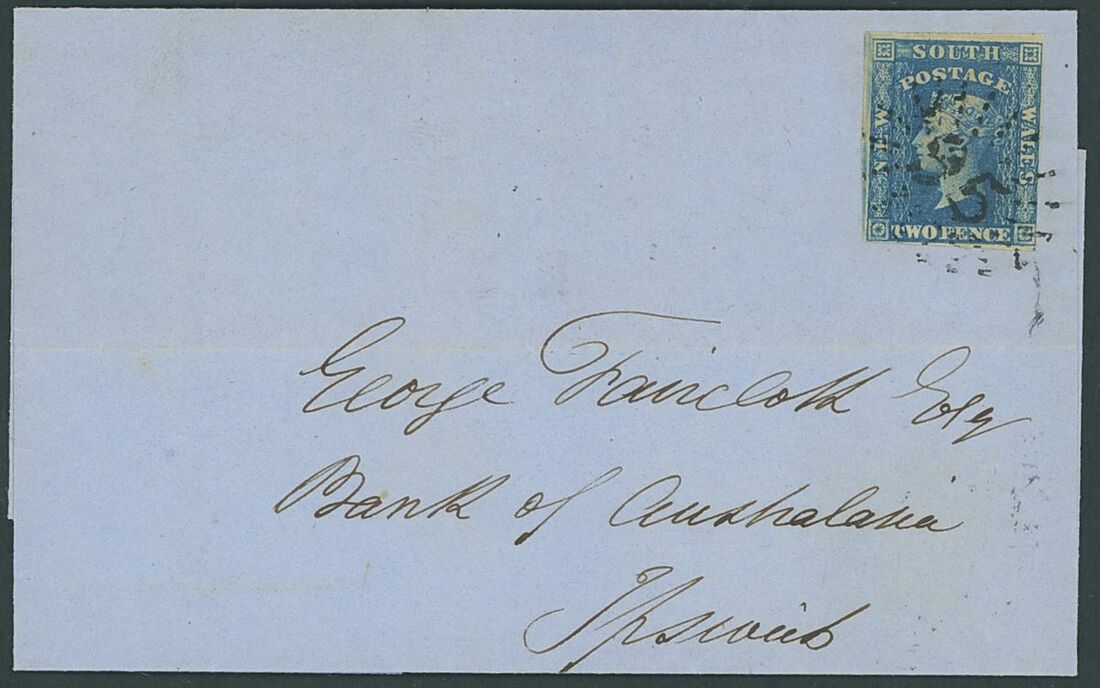 SOUTH
POSTAGE
NEW
WALES
TWO PENCE
George Faircloth Esq
Bank of Australasia
Ipswich